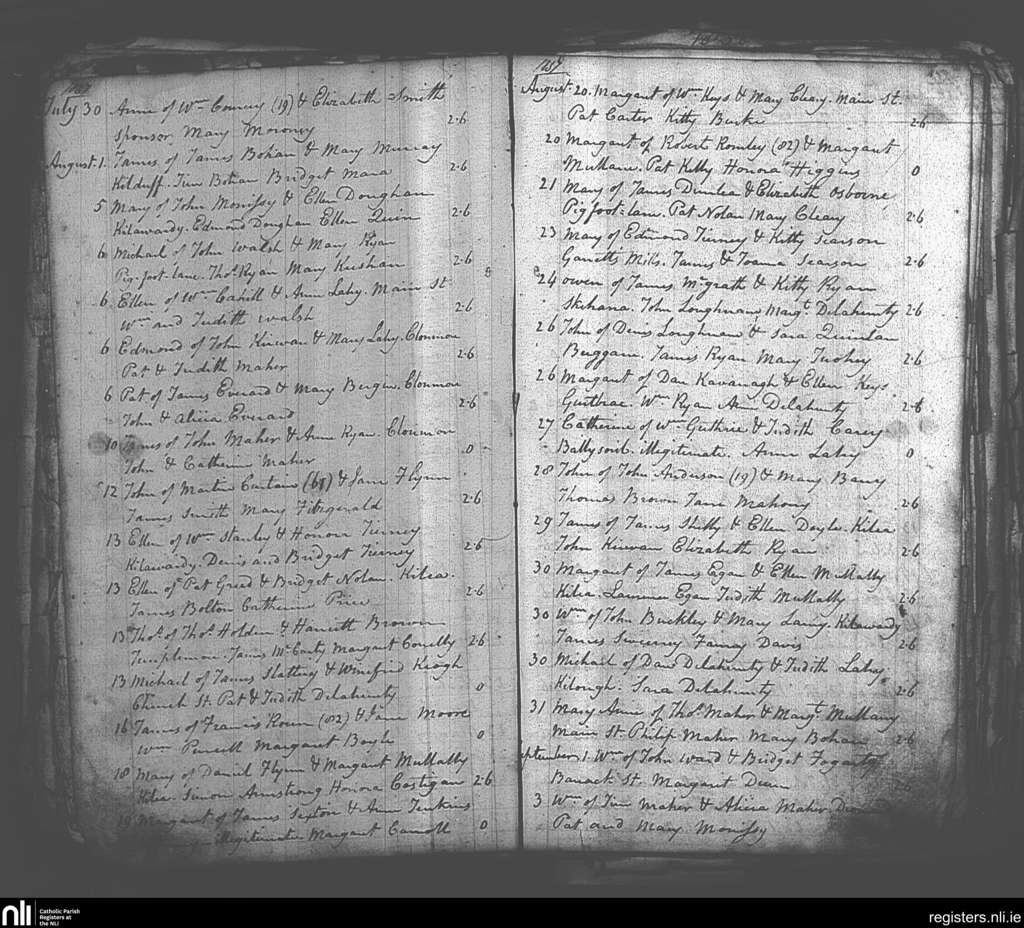 July 30 Anne of Wm Conway (19) & Elizabeth Smith
Sponsor, Mary Moroney 2-6
August. 1. James of James Bohan & Mary Murray
Kilduff. Tim Bohan Bridget Mara 2-6
5 Mary of John Monissy & Ellen Doughan
Kilawardy. Edmond Doughan Ellen Quin 2-6
6 Michael of John Walsh & Mary Ryan
Pig-foot-lane. Thos. Ryan Mary 2-6
6 Ellen of Wm Cahill & Anne Lahy. Main St
Wm and Judith Walsh 2-6
6 Edmond of John Kirwan & Mary Lahy. Clonmon
Pat & Judith Maher 2-6
6 Pat of James Everard & Mary Bergin. Clonmon
John & Alicia Everard 2-6
10 James of John Maher & Anne Ryan. Clonmon
John & Catherine Maher 0
12 John of Martin & Jane Flynn
James Smith Mary Fitzgerald 2-6
13 Ellen of Wm Stanley & Honora Tierney
Kilawardy. Denis and Bridget Tierney 2-6
13 Ellen of Pat Greed & Bridget Nolan. Kilea.
James Bolton Catherine Price 2-6
13 Thos. of Thos. Holden & Harriett Brown
Templemore. James McCarty Margaret Conelly 2-6
13 Michael of James Slattery & Winefrid Keogh
Church St. Pat & Judith Delahunty 0
16 James of Francis (82) & Jane Moore
Wm Purcell Margaret Boyle 0
18 Mary of Daniel Flynn & Margaret Mullally
Kilea. Simon Armstrong Honora Costigan 2-6
19 Margaret of James Sexton & Anne Jenkins
illegitimate Margaret Carroll 0
August. 20. Margaret of Wm Keys & Mary Cleary. Main St.
Pat Carter Kitty Burke 2-6
20 Margaret of Robert Romley (82) & Margaret
Mullane. Pat Kelly Honora Higgins 0
21 Mary of James Dunlea & Elizabeth Osborne
Pigfoot-lane. Pat Nolan Mary Cleary 2-6
23 Mary of Edmond Tierney & Kitty Searson
Garretts Mills. James & Joanna Searson 2-6
24 Owen of James McGrath & Kitty Ryan
Skehana. John Loughnane Margt. Delahunty 2-6
26 John of Denis Loughnane & Sara Quinlan
James Ryan Mary Tuohey 2-6
26 Margaret of Dan Kavanagh & Ellen Keys
Wm Ryan Anne Delahunty 2-6
27 Catherine of Wm Guthrie & Judith Carey
illegitimate. Anne Lahy 0
28 John of John Anderson (19) & Mary Barry
Thomas Brown Jane Mahony 2-6
29 James of James Shelly & Ellen Doyle. Kilea
John Kirwan Elizabeth Ryan 2-6
30 Margaret of James Egan & Ellen Mullally
Kilea. Laurence Egan Judith Mullally 2-6
30 Wm of John Buckley & Mary Lanny. Kilawardy
James Sweeney Fanny Davis 2-6
30 Michael of Dan Delahunty & Judith Lahy
Kilough. Sara Delahunty 2-6
31 Mary Anne of Thos. Maher & Margt. Mullany
Main St. Philip Maher Mary Bohan 2-6
September 1. Wm of John Ward & Bridget Fogarty
Barrack St. Margaret Dunn
3 Wm of Tim Maher & Alicia Maher
Pat and Mary Monissy
nli
Catholic Parish
Registers at
the NLI
registers.nli.ie